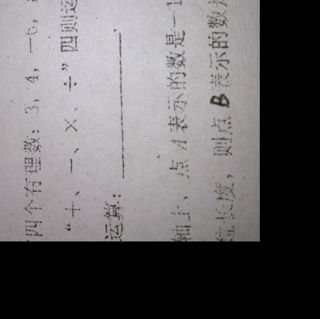 四个有理数：3，4，－6，
“＋、－、×、÷”四则运
运算：
轴上、点A表示的数是－1
位长度，则点B表示的数